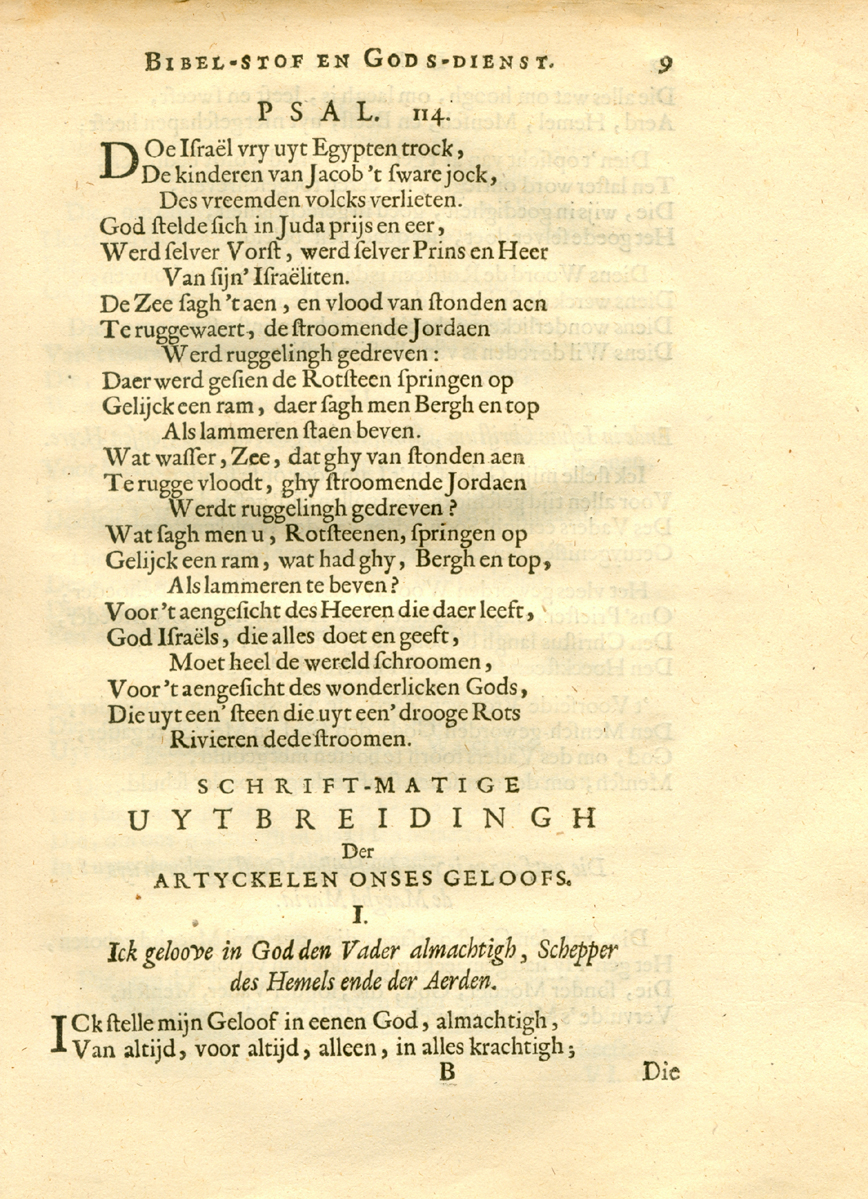 BIBEL-STOF EN GODS-DIENST. 9
PSAL. 114.
DOe Iſraël vry uyt Egypten trock,
De kinderen van Jacob 't ſware jock,
Des vreemden volcks verlieten.
God ſtelde ſich in Juda prijs en eer,
Werd ſelver Vorſt, werd ſelver Prins en Heer
Van ſijn' Iſraëliten.
De Zee ſagh 't aen, en vlood van ſtonden aen
Te ruggewaert, de ſtroomende Jordaen
Werd ruggelingh gedreven:
Daer werd geſien de Rotſteen ſpringen op
Gelijck een ram, daer ſagh men Bergh en top
Als lammeren ſtaen beven.
Wat waſſer, Zee, dat ghy van ſtonden aen
Te rugge vloodt, ghy ſtroomende Jordaen
Werdt ruggelingh gedreven?
Wat ſagh men u, Rotſteenen, ſpringen op
Gelijck een ram, wat had ghy, Bergh en top,
Als lammeren te beven?
Voor 't aengeſicht des Heeren die daer leeft,
God Iſraëls, die alles doet en geeft,
Moet heel de wereld ſchroomen,
Voor 't aengeſicht des wonderlicken Gods,
Die uyt een' ſteen die uyt een' drooge Rots
Rivieren dede ſtroomen.
SCHRIFT-MATIGE
UYTBREIDINGH
Der
ARTYCKELEN ONSES GELOOFS.
I.
Ick geloove in God den Vader almachtigh, Schepper
des Hemels ende der Aerden.
ICk ſtelle mijn Geloof in eenen God, almachtigh,
Van altijd, voor altijd, alleen, in alles krachtigh;
B Die